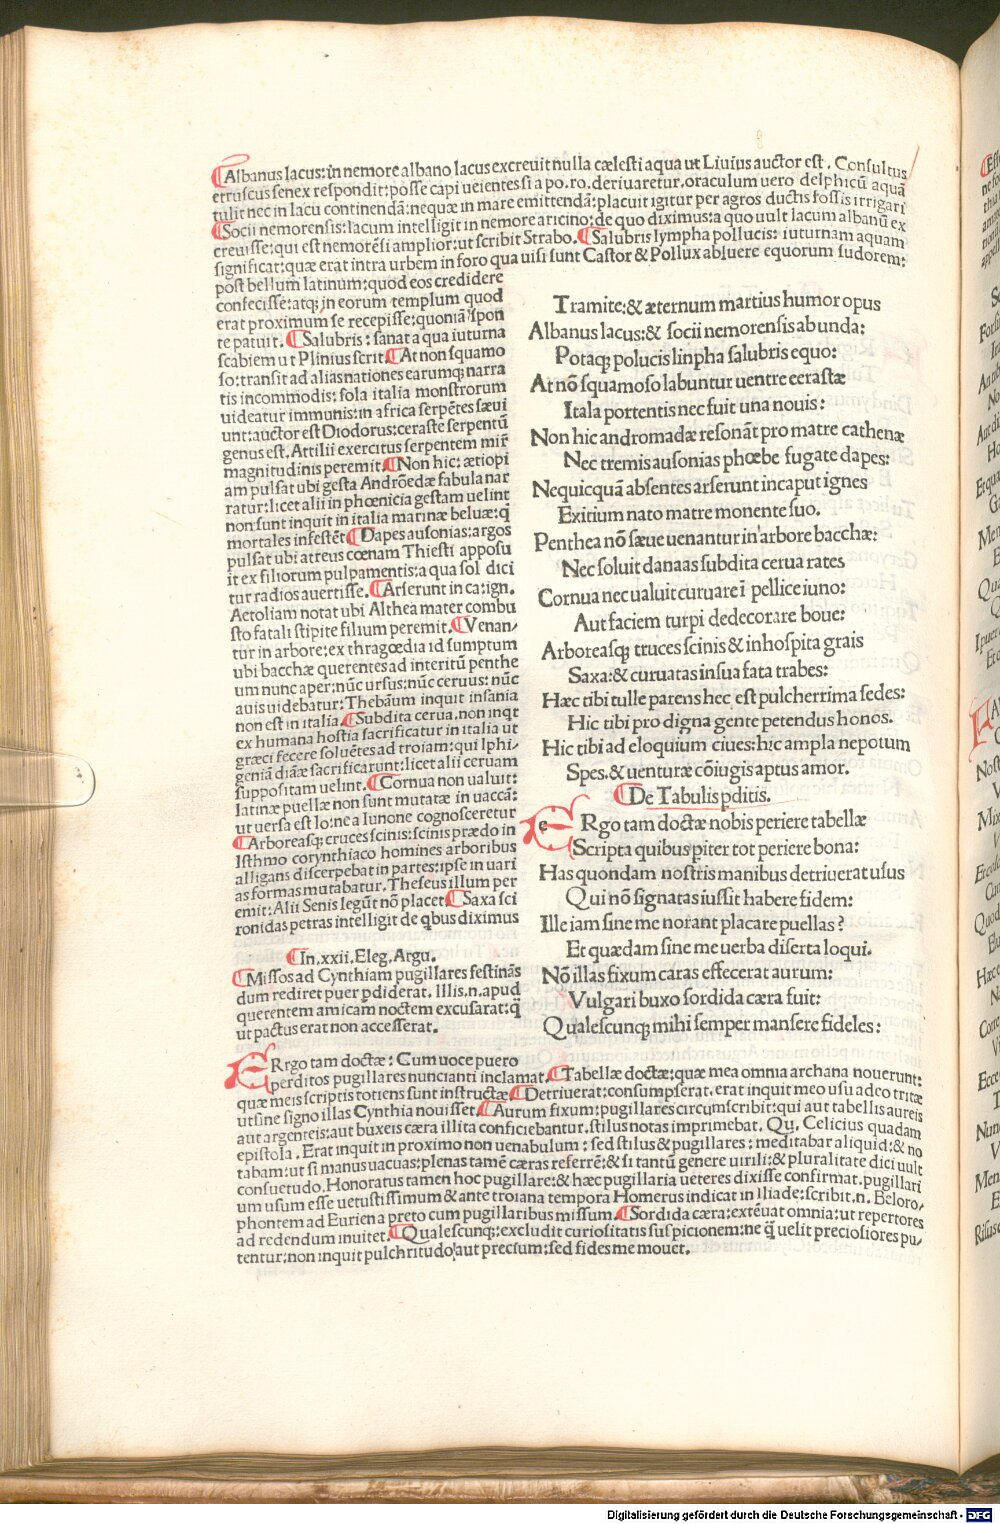 Albanus lacus: in nemore albano lacus excreuit nulla cælesti aqua ut Liuius auctor est. Consultus
etruscus senex respondit: posse capi ueientes si a po. ro. deriuaretur. oraculum uero delphicũ aquã
tulit nec in lacu continendã: nequæ in mare emittendã: placuit igitur per agros ductis fossis irrigari
Socii nemorensis: lacum intelligit in nemore aricino: de quo diximus: a quo uult lacum albanũ ex
creuisse: qui est nemorẽsi amplior: ut scribit Strabo. Salubris lympha pollucis: iuturnam aquam
significat: quæ erat intra urbem in foro qua uisi sunt Castor & Pollux abluere equorum sudorem:
post bellum latinum: quod eos credidere
confecisse: atq; in eorum templum quod
erat proximum se recepisse: quoniã spon
te patuit. Salubris: sanat a qua iuturna
scabiem ut Plinius scrit. At non squamo
so: transit ad alias nationes earumq; narra
tis incommodis: sola italia monstrorum
uideatur immunis: in africa serpẽtes sæui
unt: auctor est Diodorus: ceraste serpentũ
genus est. Attilii exercitus serpentem mir̃
magnitudinis peremit. Non hic: ætiopi
am pulsat ubi gesta Andrõedæ fabula nar
ratur: licet alii in phœnicia gestam uelint
non sunt inquit in italia marinæ beluæ: q̃
mortales infestẽt Dapes ausonias: argos
pulsat ubi atreus cœnam Thiesti apposu
it ex filiorum pulpamentis: a qua sol dici
tur radios auertisse. Arserunt in ca: ign.
Aetoliam notat ubi Althea mater combu
sto fatali stipite filium peremit. Venan/
tur in arbore: ex thragœdia id sumptum
ubi bacchæ querentes ad interitũ penthe
um nunc aper: nũc ursus: nũc ceruus: nũc
auis uidebatur: Thebãum inquit insania
non est in italia. Subdita cerua. non inqt
ex humana hostia sacrificatur in italia ut
græci fecere soluẽtes ad troiam: qui Iphi/
geniã diãæ sacrificarunt: licet alii ceruam
suppositam uelint. Cornua non ualuit:
latinæ puellæ non sunt mutatæ in uaccã:
ut uersa est Io: ne a Iunone cognosceretur
Arboreasq; cruces scinis: scinis prædo in
Isthmo corynthiaco homines arboribus
alligans discerpebat in partes: ipse in uari
as formas mutabatur. Theseus illum per
emit: Alii Senis legũt nõ placet. Saxa sci
ronidas petras intelligit de qbus diximus
In. xxii. Eleg. Argu.
Missos ad Cynthiam pugillares festinãs
dum rediret puer pdiderat. Illis. n. apud
querentem amicam noctem excusarat: q̃
ut pactus erat non accesserat.
Tramite: & æternum martius humor opus
Albanus lacus: & socii nemorensis ab unda:
Potaq; polucis linpha salubris equo:
At nõ squamoso labuntur uentre cerastæ
Itala portentis nec fuit una nouis:
Non hic andromadæ resonãt pro matre cathenæ
Nec tremis ausonias phœbe fugate dapes:
Nequicquã absentes arserunt in caput ignes
Exitium nato matre monente suo.
Penthea nõ sæue uenantur in arbore bacchæ:
Nec soluit danaas subdita cerua rates
Cornua nec ualuit curuare ĩ pellice iuno:
Aut faciem turpi dedecorare boue:
Arboreasq; truces scinis & inhospita grais
Saxa: & curuatas in sua fata trabes:
Hæc tibi tulle parens hec est pulcherrima sedes:
Hic tibi pro digna gente petendus honos.
Hic tibi ad eloquium ciues: hic ampla nepotum
Spes. & uenturæ cõiugis aptus amor.
De Tabulis pditis.
e Rgo tam doctæ nobis periere tabellæ
Scripta quibus piter tot periere bona:
Has quondam nostris manibus detriuerat usus
Qui nõ signatas iussit habere fidem:
Ille iam sine me norant placare puellas?
Et quædam sine me uerba diserta loqui.
Nõ illas fixum caras effecerat aurum:
Vulgari buxo sordida cæra fuit:
Qualescunq; mihi semper mansere fideles:
ERrgo tam doctæ: Cum uoce puero
perditos pugillares nuncianti inclamat. Tabellæ doctæ: quæ mea omnia archana nouerunt:
quæ meis scriptis totiens sunt instructæ Detriuerat: consumpserat. erat inquit meo usu adeo tritæ
ut sine signo illas Cynthia nouisset. Aurum fixum: pugillares circumscribit: qui aut tabellis aureis
aut argenteis: aut buxeis cæra illita conficiebantur. stilus notas imprimebat. Qu. Celicius quadam
epistola. Erat inquit in proximo non uenabulum: sed stilus & pugillares: meditabar aliquid: & no
tabam: ut si manus uacuas: plenas tamẽ cæras referrẽ: & si tantũ genere uirili: & pluralitate dici uult
consuetudo. Honoratus tamen hoc pugillare: & hæc pugillaria ueteres dixisse confirmat. pugillari
um usum esse uetustissimum & ante troiana tempora Homerus indicat in Iliade: scribit. n. Beloro/
phontem ad Euriena preto cum pugillaribus missum. Sordida cæra: extẽuat omnia: ut repertores
ad redendum inuitet. Qualescunq;: excludit curiositatis suspicionem: ne q̃ uelit preciosiores pu/
tentur: non inquit pulchritudo aut precium: sed fides me mouet.
Digitalisierung gefördert durch die Deutsche Forschungsgemeinschaft - DFG